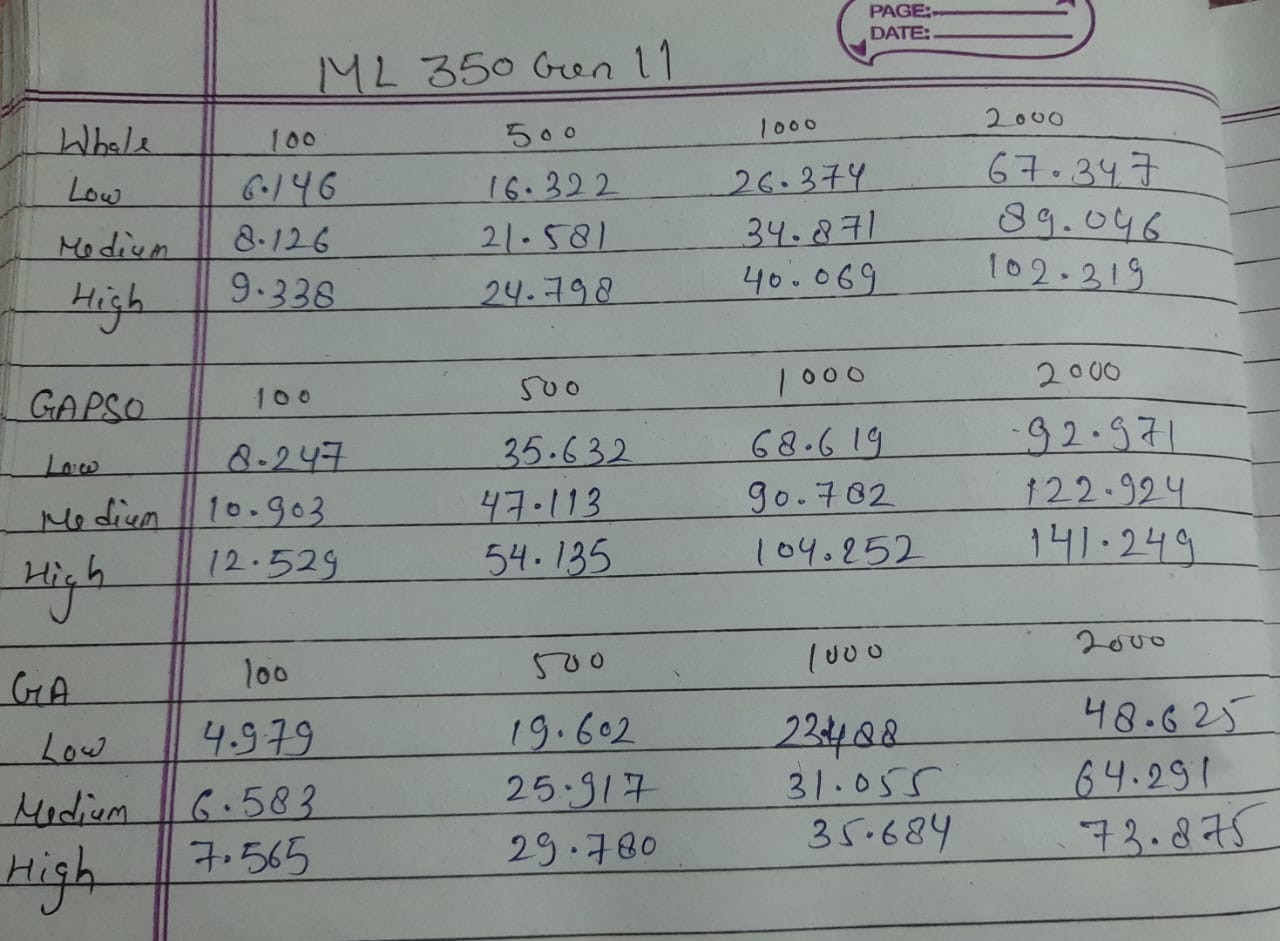 PAGE:
DATE:
ML 350 Gen 11
Whale 100 500 1000 2000
Low 6.146 16.322 26.374 67.347
Medium 8.126 21.581 34.871 89.046
High 9.338 24.798 40.069 102.319
GAPSO 100 500 1000 2000
Low 8.247 35.632 68.619 92.971
Medium 10.903 47.113 90.782 122.924
High 12.529 54.135 104.252 141.249
GA 100 500 1000 2000
Low 4.979 19.602 23.488 48.625
Medium 6.583 25.917 31.055 64.291
High 7.565 29.780 35.684 73.875